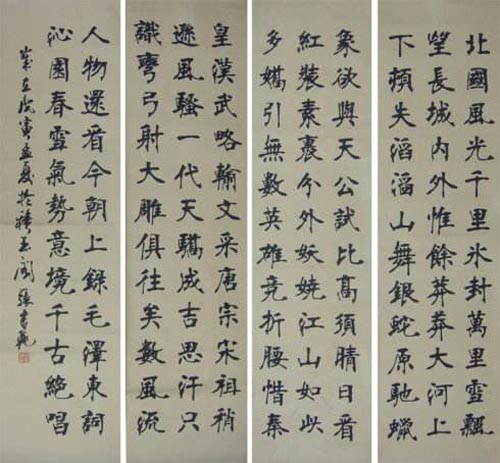 北國風光千里氷封萬里雪飄
望長城內外惟餘莽莽大河上
下頓失滔滔山舞銀蛇原馳蠟
象欲與天公試比高須晴日看
紅裝素裹分外妖嬈江山如此
多嬌引無數英雄竞折腰惜秦
皇漢武略輸文采唐宗宋祖稍
遜風騷一代天驕成吉思汗只
識彎弓射大雕俱往矣數風流
人物還看今朝上錄毛澤東詞
沁園春雪氣勢意境千古絕唱
歲在庚寅孟夏於 閣 張書範